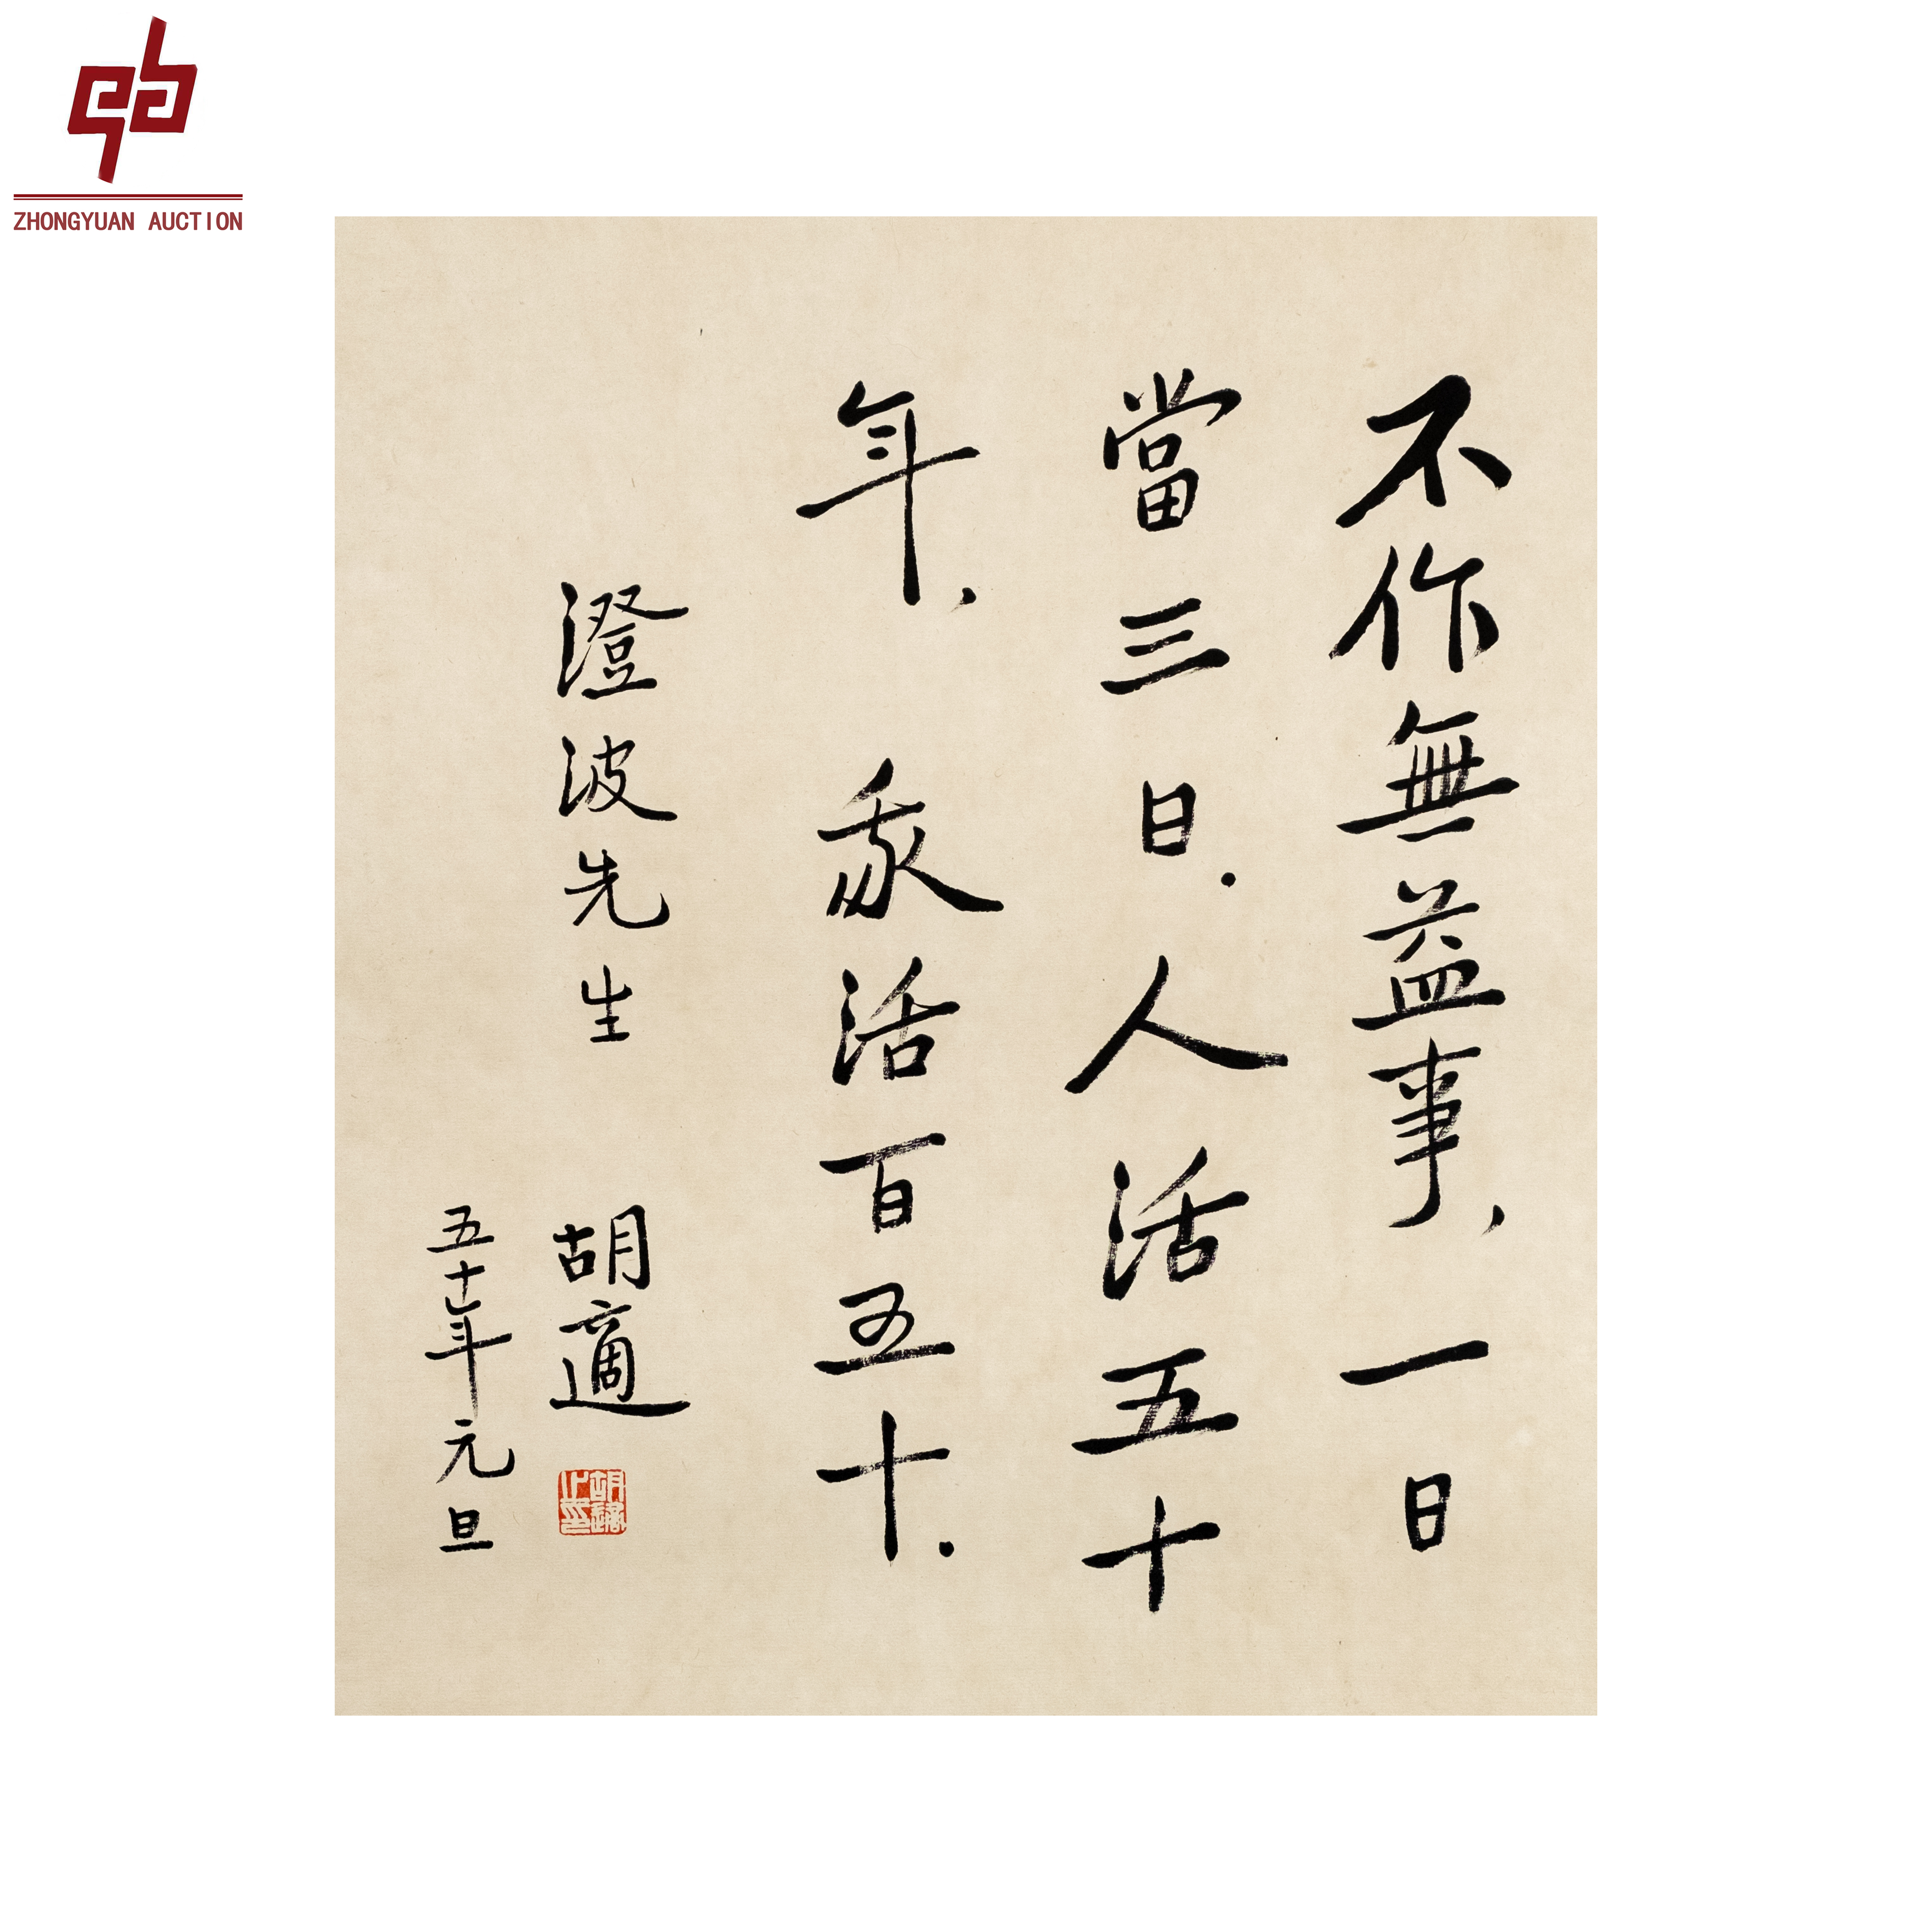 ZHONGYUAN AUCTION
不作無益事，一日
當三日．人活五十
年，我活百五十．
澄波先生 胡適
五十年元旦
胡適之印